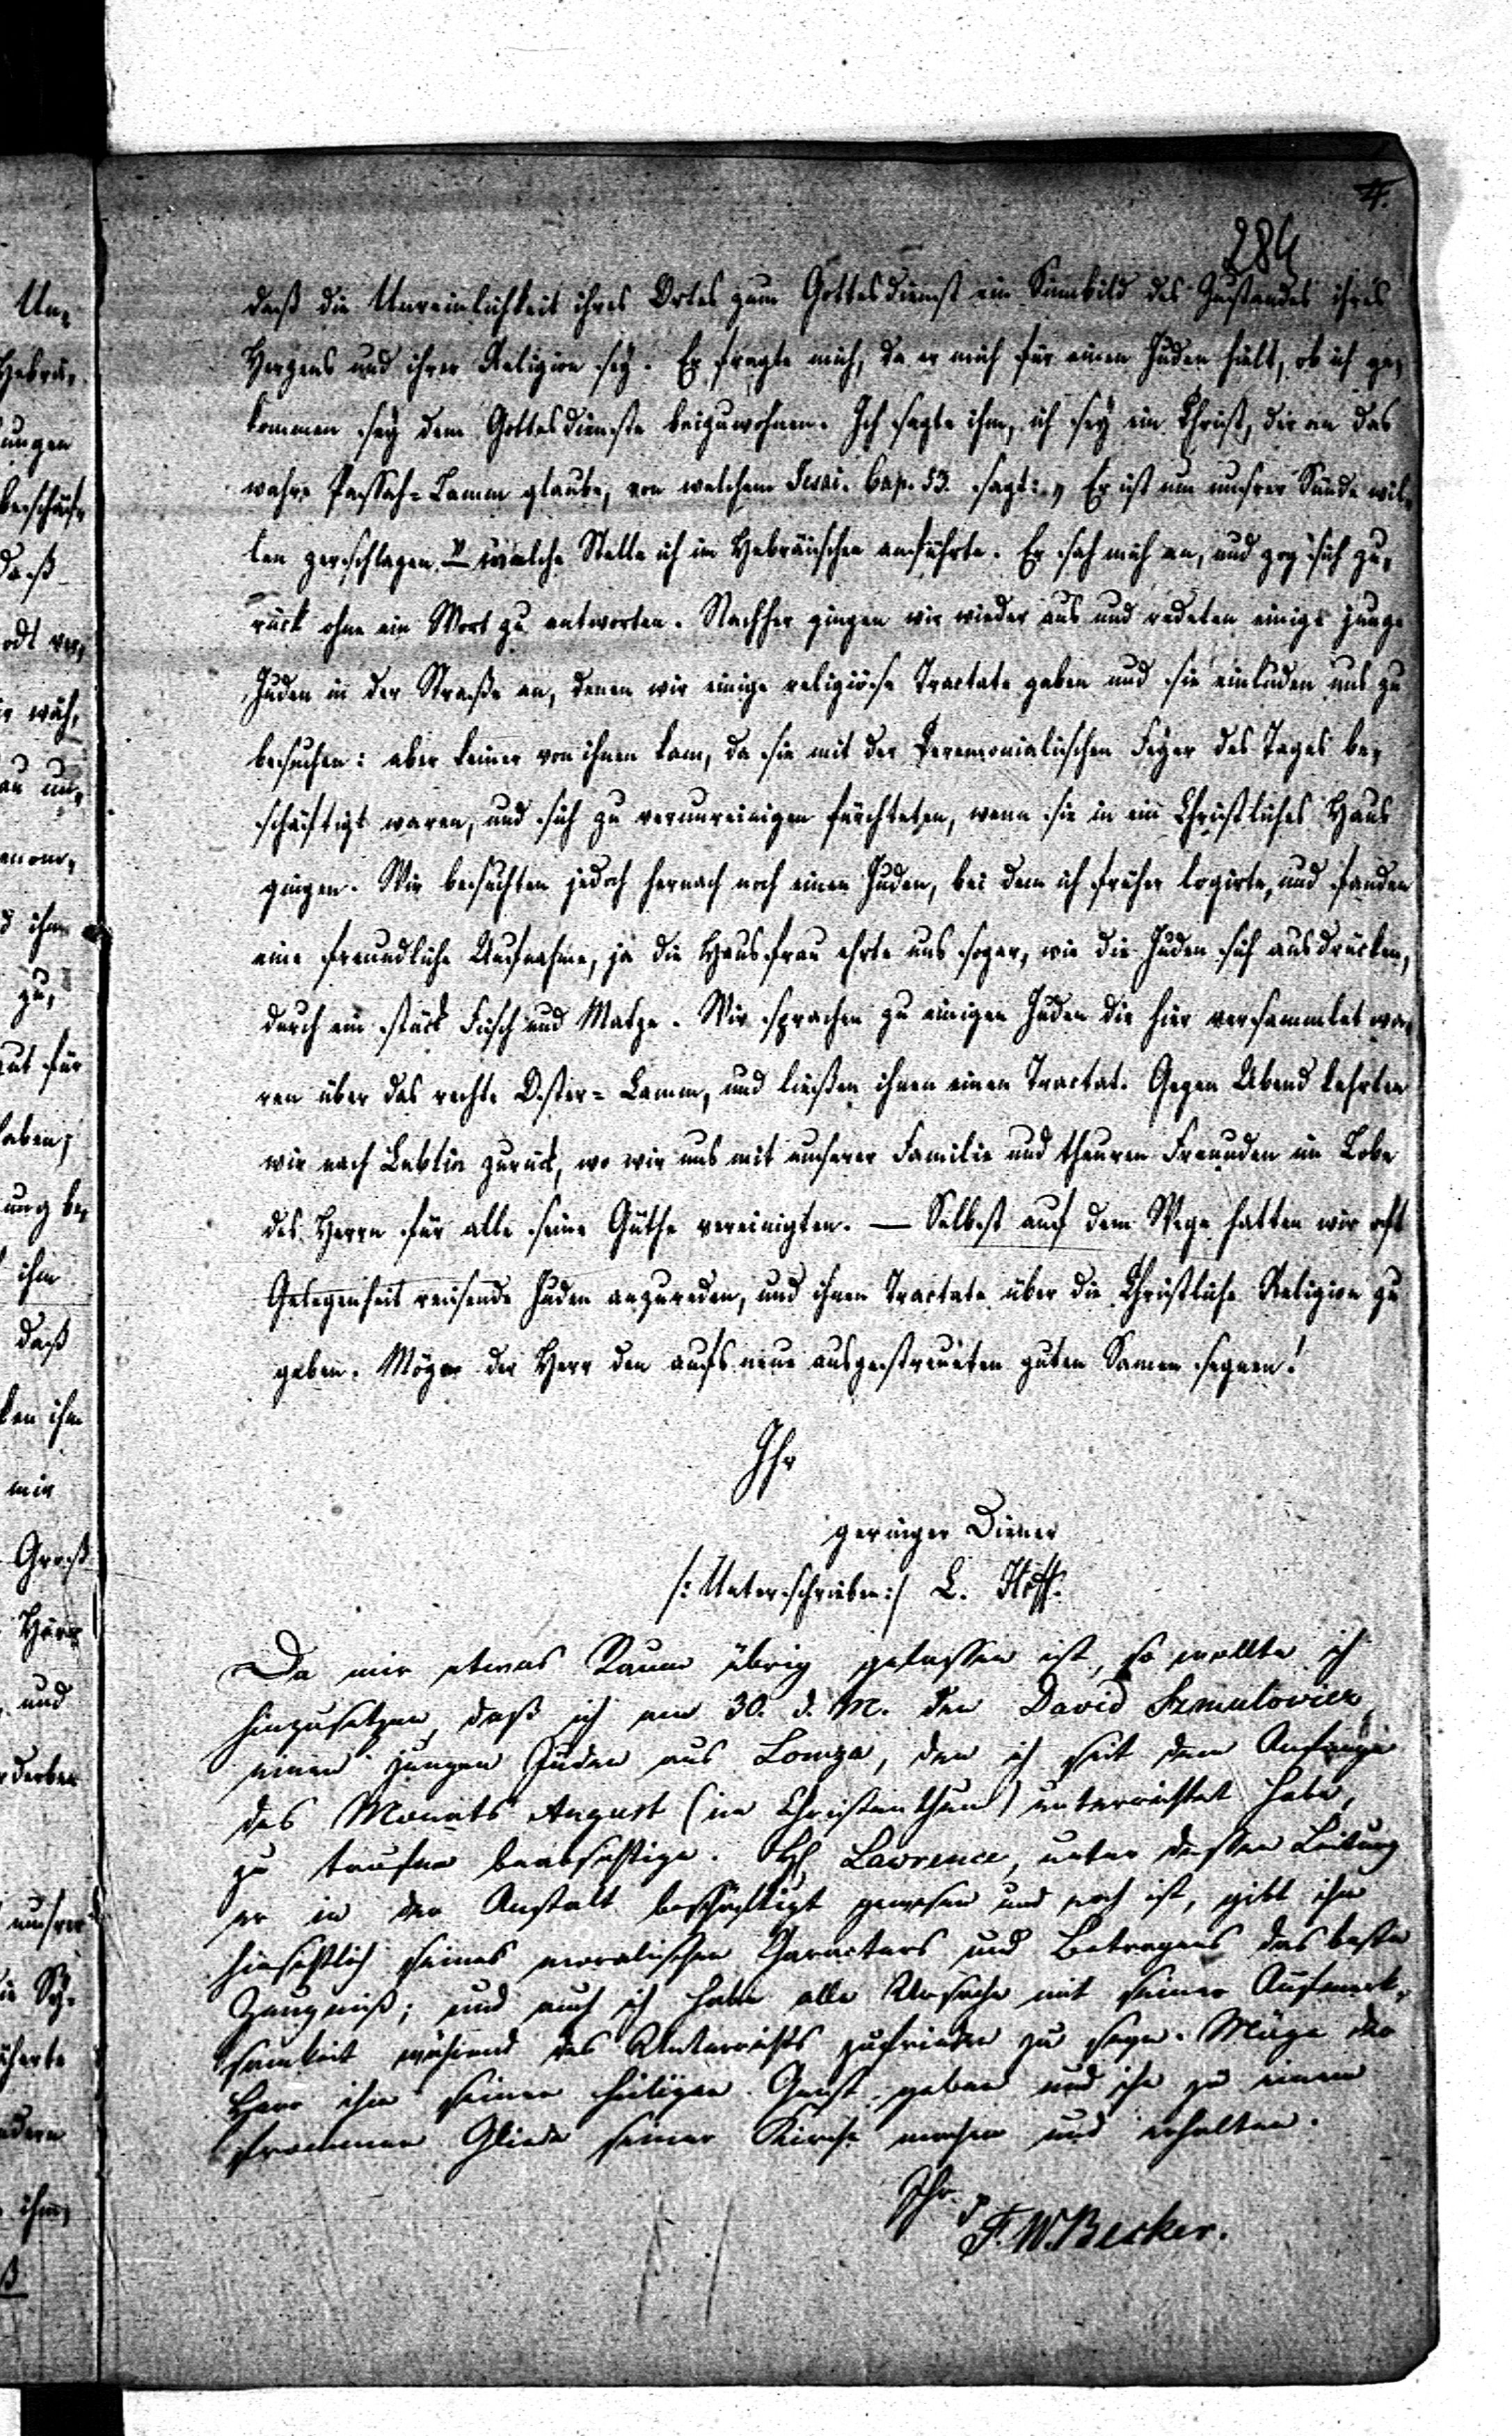 4.
284
daß die Unreinlichkeit ihres Ortes zum Gottesdienst ein Sinnbild des Zustandes ihres
Herzens und ihrer Religion sey. Er fragte mich, da er mich für einen Juden hielt, ob ich ge-
kommen sey dem Gottesdienste beizuwohnen. Ich sagte ihm, ich sey ein Christ, der an das
wahre Passah-Lamm glaube, von welchem Jesai. Cap. 53. sagt: „Er ist um unsrer Sünde wil-
len zerschlagen" – welche Stelle ich im Hebräischen anführte. Er sah mich an, und zog sich zu-
rück ohne ein Wort zu antworten. Nachher gingen wir wieder aus und redeten einige junge
Juden in der Straße an, denen wir einige religiöse Tractate gaben und sie einluden uns zu
besuchen: aber keiner von ihnen kam, da sie mit der Ceremonialischen Feyer des Tages be-
schäftigt waren, und sich zu verunreinigen fürchteten, wenn sie in ein Christliches Haus
gingen. Wir besuchten jedoch hernach noch einen Juden, bei dem ich früher logirte, und fanden
eine freundliche Aufnahme, ja die Hausfrau ehrte uns sogar, wie die Juden sich ausdrücken,
durch ein stück Fisch und Matze. Wir sprachen zu einigen Juden die hier versammlet wa-
ren über das rechte Oster-Lamm, und ließen ihnen einen Tractat. Gegen Abend kehrten
wir nach Lublin zurück, wo wir uns mit unserer Familie und theuren Freunden im Lobe
des Herrn für alle seine Güthe vereinigten. — Selbst auf dem Wege hatten wir oft
Gelegenheit reisende Juden anzureden, und ihnen Tractate über die Christliche Religion zu
geben. Möge der Herr den aufs neue ausgestreuten guten Samen segnen!
Ihr
geringer Diener
/: Unterschrieben :/ L. Hoff.
Da mir etwas Raum übrig gelassen ist, so wollte ich
hinzusetzen, daß ich am 30. d. M. den David Szmulovicz,
einen jungen Juden aus Lomza, den ich seit dem Anfange
des Monats August (im Christenthum) unterrichtet habe,
zu taufen beabsichtige. H Lawrence, unter dessen Leitung
er in der Anstalt beschäftigt gewesen und noch ist, gibt ihm
hinsichtlich seines moralischen Characters und Betragens das beste
Zeugniß; und auch ich habe alle Ursache mit seiner Aufmerk-
samkeit während des Unterrichts zufrieden zu seyn. Möge der
Herr ihm seinen heiligen Geist geben und ihn zu einem
frommen Gliede seiner Kirche machen und erhalten.
Ihr
F. W. Becker.